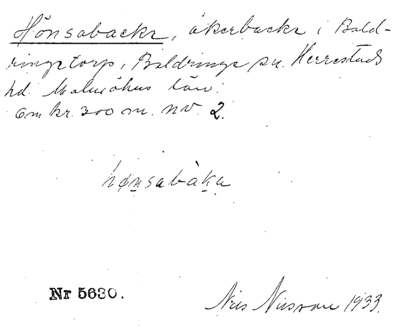 Hönsabackr, åkerbackr i Bald-
ringstorp, Baldringe sn. Herrestads
hd. Malmöhus län.
Om kr. 300 m. NV 2.
hønsabàka
Nr 5630.
Nils Nilsson 1933.